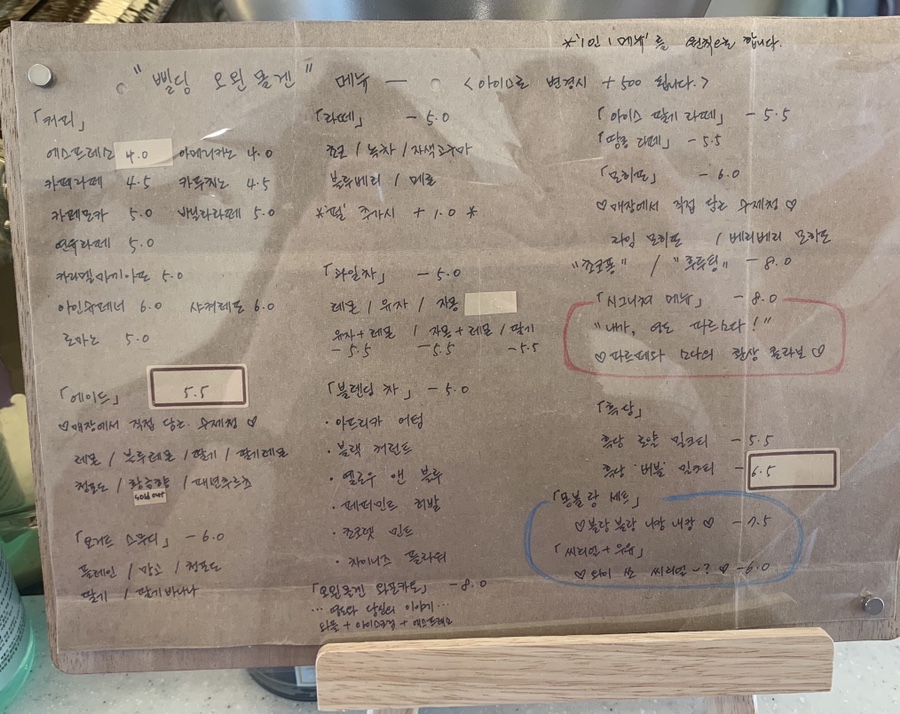 *'1인 1메뉴'를 원칙으로 합니다.
"삘딩 오원몰겐" 메뉴 — <아이스로 변경시 +500 됩니다.>
「커피」
에스프레소 4.0 아메리카노 4.0
카페라떼 4.5 카푸치노 4.5
카페모카 5.0 바닐라라떼 5.0
연유라떼 5.0
카라멜마끼아또 5.0
아인슈페너 6.0 샤케라또 6.0
로마노 5.0
「에이드」 5.5
♡매장에서 직접 담근 수제청♡
레몬 / 블루레몬 / 딸기 / 딸기레몬
청포도 / / 패션후르츠
sold out
「요거트 스무디」 - 6.0
플레인 / 망고 / 청포도
딸기 / 딸기바나나
「라떼」 - 5.0
초코 / 녹차 / 자색고구마
블루베리 / 메론
*'펄' 추가시 + 1.0 *
「과일차」 - 5.0
레몬 / 유자 / 자몽
유자+레몬 / 자몽+레몬 / 딸기
-5.5 -5.5 -5.5
「블렌딩 차」 - 5.0
· 아프리카 어텀
· 블랙 커런트
· 옐로우 앤 블루
· 페퍼민트 허발
· 초콜렛 민트
· 차이니즈 플라워
「오원몰겐 와포카토」 - 8.0
… 영도와 당신의 이야기 …
와플 + 아이스크림 + 에스프레소
「아이스 딸기 라떼」 - 5.5
「땅콩 라떼」 - 5.5
「모히또」 - 6.0
♡매장에서 직접 담근 수제청♡
라임 모히또 / 베리베리 모히또
"초코퐁" / "후루링" - 8.0
「시그니처 메뉴」 - 8.0
"내가, 영도 파르소다!"
♡파르페와 소다의 환상 콜라보♡
「흑당」
흑당 로얄 밀크티 - 5.5
흑당 버블 밀크티 - 6.5
「몽블랑 세트」
♡블랑 블랑 냐캉 내캉♡ - 7.5
「씨리얼 + 우유」
♡와이 쏘 씨리얼~?♡ - 6.0